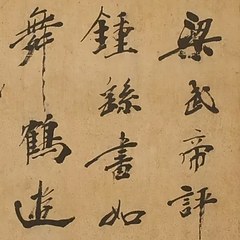 梁武帝評
鍾繇書如
舞鶴遊